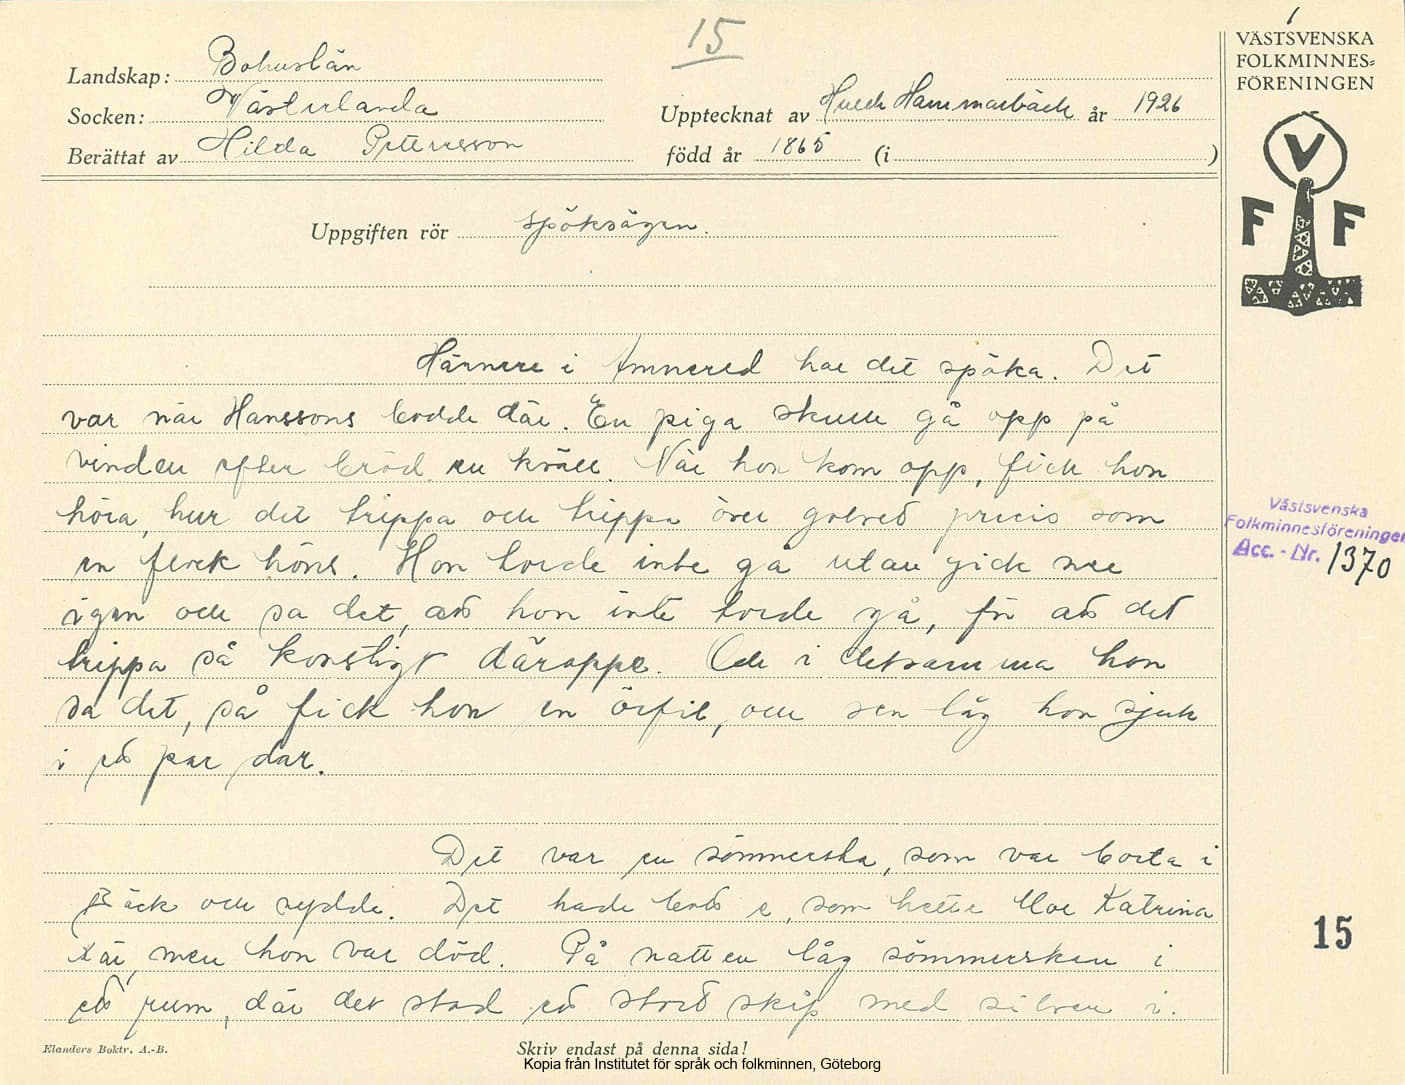 15
VÄSTSVENSKA
FOLKMINNES=
FÖRENINGEN
V
F F
Landskap: Bohuslän
Socken: Västerlanda
Upptecknat av Huldi Hammarbäck år 1926
Berättat av Hilda Pettersson
född år 1865 (i )
Uppgiften rör spöksägen.
Härnere i Amnered har det spöka. Det
var när Hanssons bodde där. En piga skulle gå opp på
vinden efter bröd en kväll. När hon kom opp, fick hon
höra, hur det trippa och trippa över golved precis som
en flock höns. Hon torde inte gå utan gick ner
igen och sa det, ad hon inte torde gå, för ad det
trippa så konstigt däroppe. Och i detsamma hon
sa det, så fick hon en örfil, och sen låg hon sjuk
i ed par dar.
Det var en sömmerska, som var borta i
Bäck och sydde. Det hade bod e, som hette Moe Katrina
där, men hon var död. På natten låg sömmerskan i
ed rum, där det stod ed stord skåp med silver i.
Västsvenska
Folkminnesföreningen
Acc. - Nr. 1370
15
Elanders Boktr. A.-B.
Skriv endast på denna sida!
Kopia från Institutet för språk och folkminnen, Göteborg